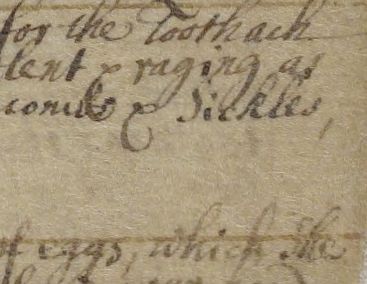 for the Toothach
lent & raging as
& Sickles,
of eggs, which the